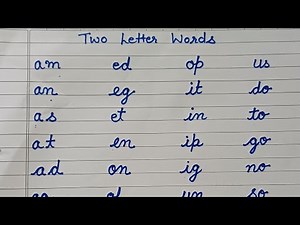 Two Letter Words
am ed op us
an eg it do
as et in to
at en ip go
ad on ig no
un so